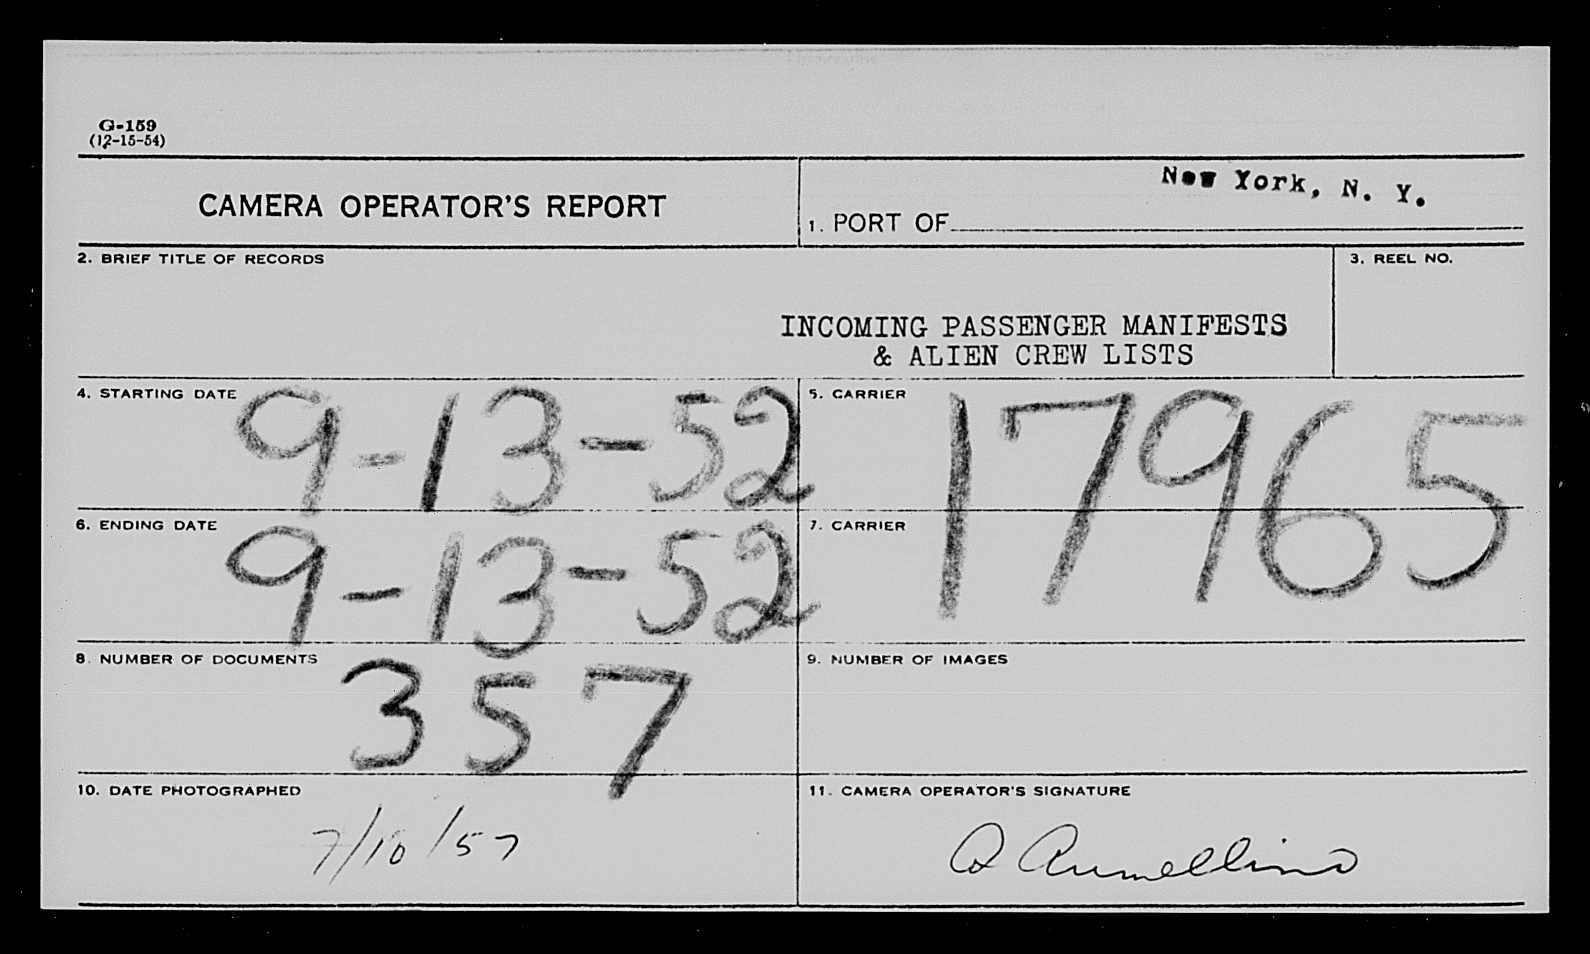 G-159
(12-15-54)
CAMERA OPERATOR'S REPORT
1. PORT OF New York, N. Y.
2. BRIEF TITLE OF RECORDS
INCOMING PASSENGER MANIFESTS
& ALIEN CREW LISTS
3. REEL NO.
4. STARTING DATE 9-13-52
5. CARRIER 17965
6. ENDING DATE 9-13-52
7. CARRIER
8. NUMBER OF DOCUMENTS 357
9. NUMBER OF IMAGES
10. DATE PHOTOGRAPHED
7/10/57
11. CAMERA OPERATOR'S SIGNATURE